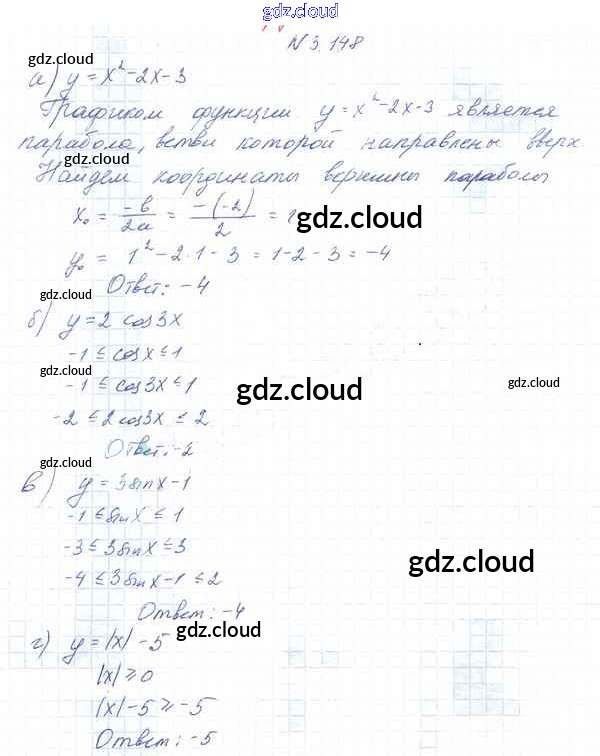 gdz.cloud
N 3.148
gdz.cloud
а) y = x² - 2x - 3
Графиком функции y = x² - 2x - 3 является
парабола, ветви которой направлены вверх
gdz.cloud
Найдем координаты вершины параболы
x₀ = -b/2a = -(-2)/2 = 1
gdz.cloud
y₀ = 1² - 2·1 - 3 = 1 - 2 - 3 = -4
Ответ: -4
gdz.cloud
б) y = 2 cos3x
-1 ≤ cosx ≤ 1
gdz.cloud
-1 ≤ cos3x ≤ 1
gdz.cloud
gdz.cloud
-2 ≤ 2cos3x ≤ 2
Ответ: -2
gdz.cloud
в) y = 3sinx - 1
-1 ≤ sinx ≤ 1
-3 ≤ 3sinx ≤ 3
gdz.cloud
-4 ≤ 3sinx - 1 ≤ 2
Ответ: -4
gdz.cloud
г) y = |x| - 5
|x| ≥ 0
|x| - 5 ≥ -5
gdz.cloud
Ответ: -5